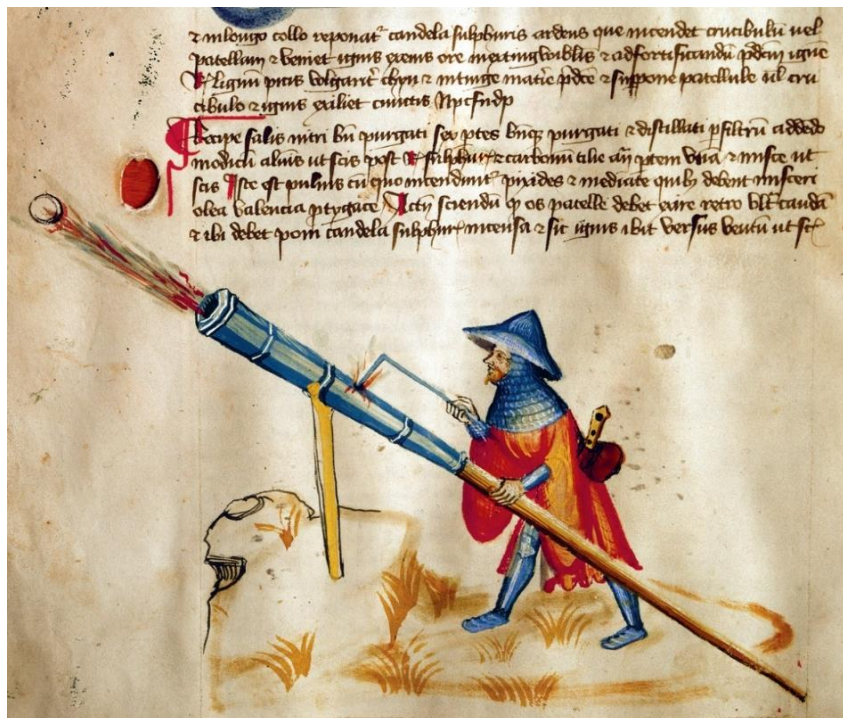 ⁊ in longo collo reponat᷑ candela sulphuris ardens que incendet crucibulū uel
patellam ⁊ veniet ignis exiens ore inextingwibilis ⁊ ad fortificandū p̄dcm̄ igne
℞ lignū picis volgarit᷑ ⁊ intinge matie p̄dce ⁊ suppone patellule ul᷑ cru
cibulo ⁊ ignis exiliet cunctis
Recipe salis nitri bn̄ purgati sex ptes purgati ⁊ distillati p filtrū addēdo
modicū ut scis post ℞ sulphur̄ ⁊ carbonū tilie ptem vnā ⁊ misce ut
scis Iste est pulūis cū quo incendunt᷑ pixides ⁊ mediate quib; debent misceri
olea Itē sciendū ꝙ os patelle debet exire retro caudā
⁊ ibi debet poni candela sulphur̄ incensa ⁊ sic ignis ibit versus ventū ut